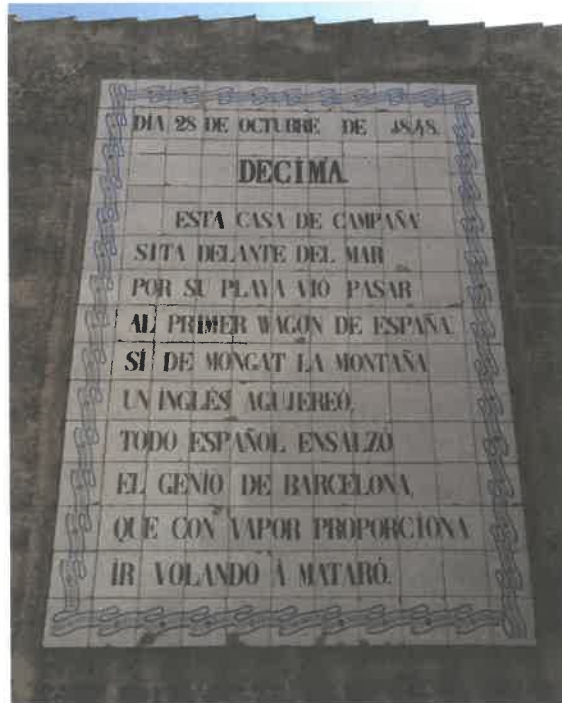 DIA 28 DE OCTUBRE DE 1848.
DECIMA.
ESTA CASA DE CAMPAÑA
SITA DELANTE DEL MAR
POR SU PLAYA VIÓ PASAR
AL PRIMER WAGON DE ESPAÑA.
SÍ DE MONGAT LA MONTAÑA
UN INGLÉS AGUJEREÓ,
TODO ESPAÑOL ENSALZÓ
EL GENIO DE BARCELONA,
QUE CON VAPOR PROPORCIONA
IR VOLANDO Á MATARÓ.